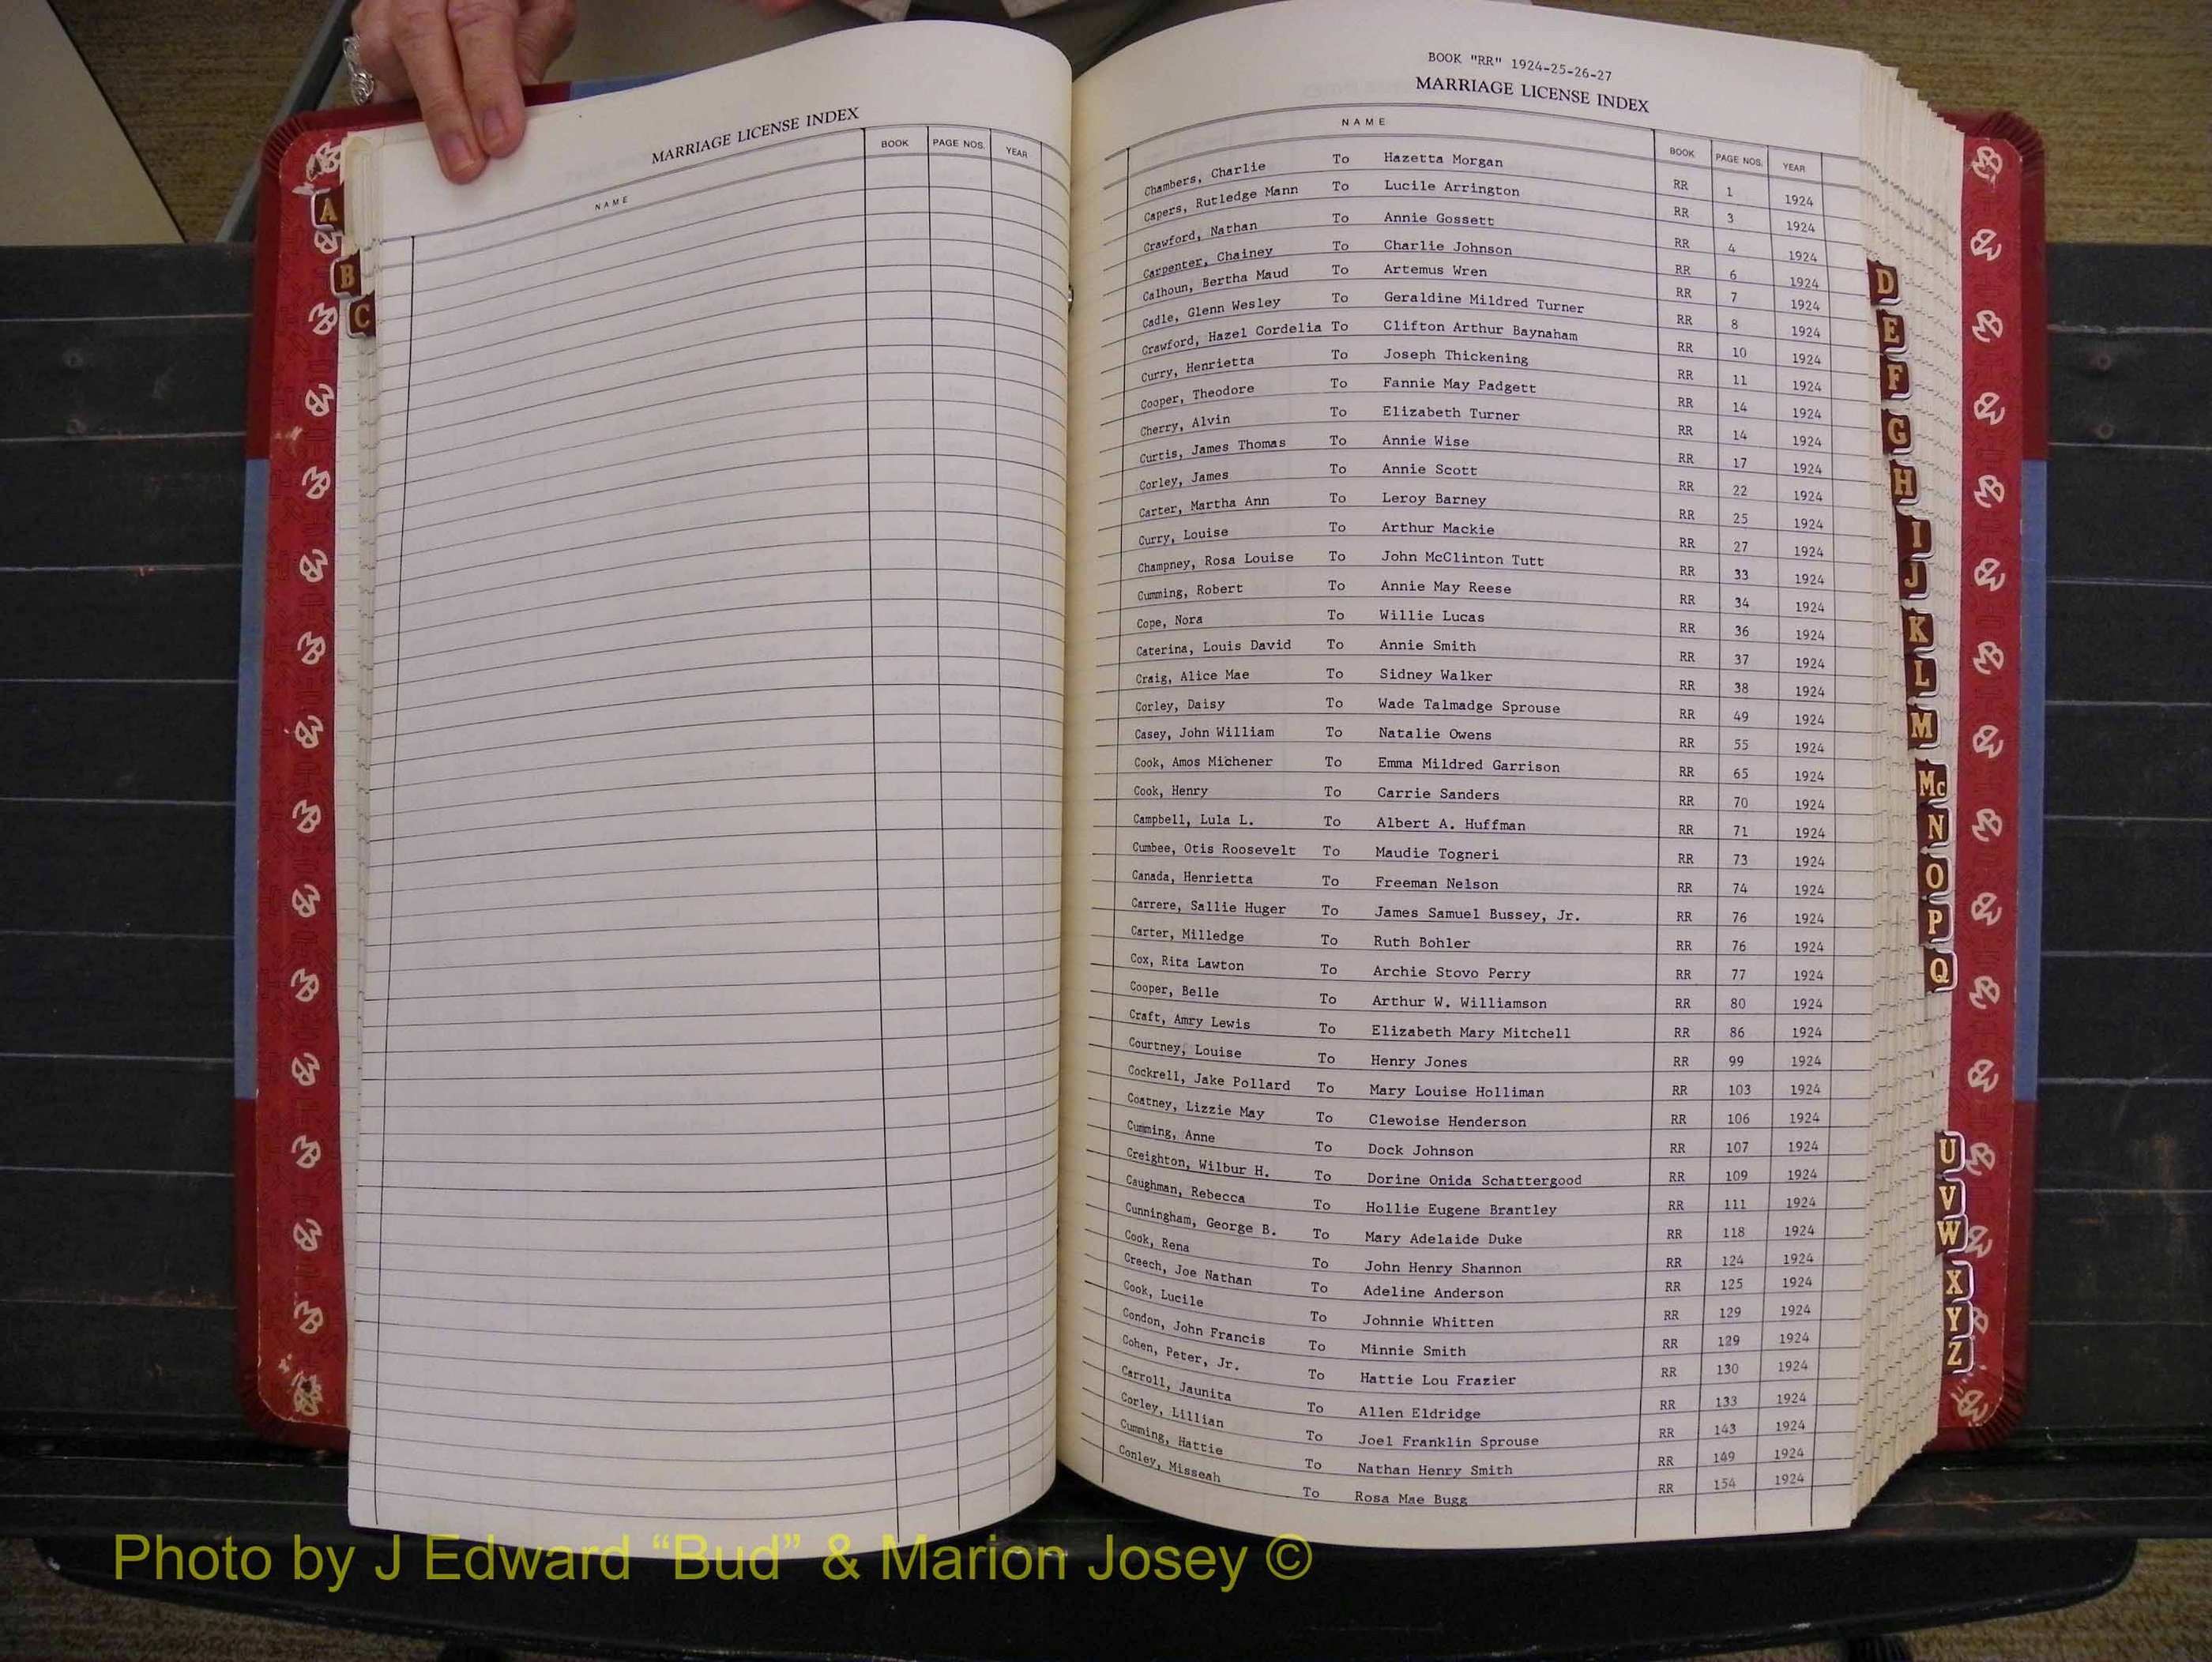 MARRIAGE LICENSE INDEX
NAME BOOK PAGE NOS. YEAR
A
B
C
BOOK "RR" 1924-25-26-27
MARRIAGE LICENSE INDEX
NAME BOOK PAGE NOS. YEAR
Chambers, Charlie To Hazetta Morgan RR 1 1924
Capers, Rutledge Mann To Lucile Arrington RR 3 1924
Crawford, Nathan To Annie Gossett RR 4 1924
Carpenter, Chainey To Charlie Johnson RR 6 1924
Calhoun, Bertha Maud To Artemus Wren RR 7 1924
Cadle, Glenn Wesley To Geraldine Mildred Turner RR 8 1924
Crawford, Hazel Cordelia To Clifton Arthur Baynaham RR 10 1924
Curry, Henrietta To Joseph Thickening RR 11 1924
Cooper, Theodore To Fannie May Padgett RR 14 1924
Cherry, Alvin To Elizabeth Turner RR 14 1924
Curtis, James Thomas To Annie Wise RR 17 1924
Corley, James To Annie Scott RR 22 1924
Carter, Martha Ann To Leroy Barney RR 25 1924
Curry, Louise To Arthur Mackie RR 27 1924
Champney, Rosa Louise To John McClinton Tutt RR 33 1924
Cumming, Robert To Annie May Reese RR 34 1924
Cope, Nora To Willie Lucas RR 36 1924
Caterina, Louis David To Annie Smith RR 37 1924
Craig, Alice Mae To Sidney Walker RR 38 1924
Corley, Daisy To Wade Talmadge Sprouse RR 49 1924
Casey, John William To Natalie Owens RR 55 1924
Cook, Amos Michener To Emma Mildred Garrison RR 65 1924
Cook, Henry To Carrie Sanders RR 70 1924
Campbell, Lula L. To Albert A. Huffman RR 71 1924
Cumbee, Otis Roosevelt To Maudie Togneri RR 73 1924
Canada, Henrietta To Freeman Nelson RR 74 1924
Carrere, Sallie Huger To James Samuel Bussey, Jr. RR 76 1924
Carter, Milledge To Ruth Bohler RR 76 1924
Cox, Rita Lawton To Archie Stovo Perry RR 77 1924
Cooper, Belle To Arthur W. Williamson RR 80 1924
Craft, Amry Lewis To Elizabeth Mary Mitchell RR 86 1924
Courtney, Louise To Henry Jones RR 99 1924
Cockrell, Jake Pollard To Mary Louise Holliman RR 103 1924
Coatney, Lizzie May To Clewoise Henderson RR 106 1924
Cumming, Anne To Dock Johnson RR 107 1924
Creighton, Wilbur H. To Dorine Onida Schattergood RR 109 1924
Caughman, Rebecca To Hollie Eugene Brantley RR 111 1924
Cunningham, George B. To Mary Adelaide Duke RR 118 1924
Cook, Rena To John Henry Shannon RR 124 1924
Creech, Joe Nathan To Adeline Anderson RR 125 1924
Cook, Lucile To Johnnie Whitten RR 129 1924
Condon, John Francis To Minnie Smith RR 129 1924
Cohen, Peter, Jr. To Hattie Lou Frazier RR 130 1924
Carroll, Jaunita To Allen Eldridge RR 133 1924
Corley, Lillian To Joel Franklin Sprouse RR 143 1924
Cumming, Hattie To Nathan Henry Smith RR 149 1924
Conley, Misseah To Rosa Mae Bugg RR 154 1924
D
E
F
G
H
I
J
K
L
M
Mc
N
O
P
Q
U
V
W
X
Y
Z
Photo by J Edward “Bud” & Marion Josey ©